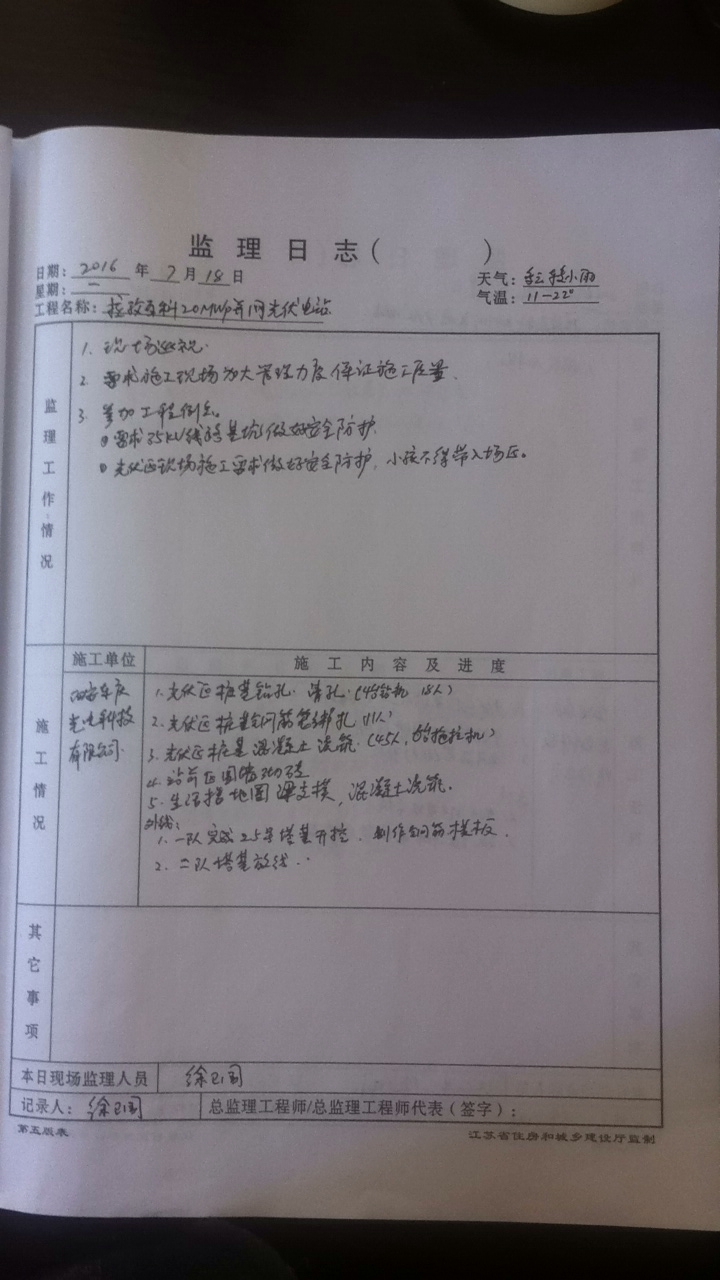 监理日志(      )
日期：2016年7月18日
天气：多云转小雨
星期：一
气温：11-22°
工程名称：20MWp并网光伏电站
监理工作情况
1. 现场巡视.
2 要求施工现场加大管理力度保证施工质量.
3. 参加工程例会。
①要求35KV线路基坑做好安全防护.
②光伏区现场施工要求做好安全防护，小孩不得带入场区。
施工单位
施工内容及进度
施工情况
光电科技
有限公司.
1. 光伏区桩基钻孔. 清孔.(4台钻机 18人)
2. 光伏区桩基钢筋笼绑扎(11人)
3. 光伏区桩基混凝土浇筑.(45人,
4. 站前区围墙砌砖
5. 生活楼地圈梁支模，混凝土浇筑.
外线:
1. 一队完成25号塔基开挖. 制作钢筋模板.
2. 二队塔基放线.
其它事项
本日现场监理人员
徐
记录人：徐
总监理工程师/总监理工程师代表(签字)：
第五版表
江苏省住房和城乡建设厅监制